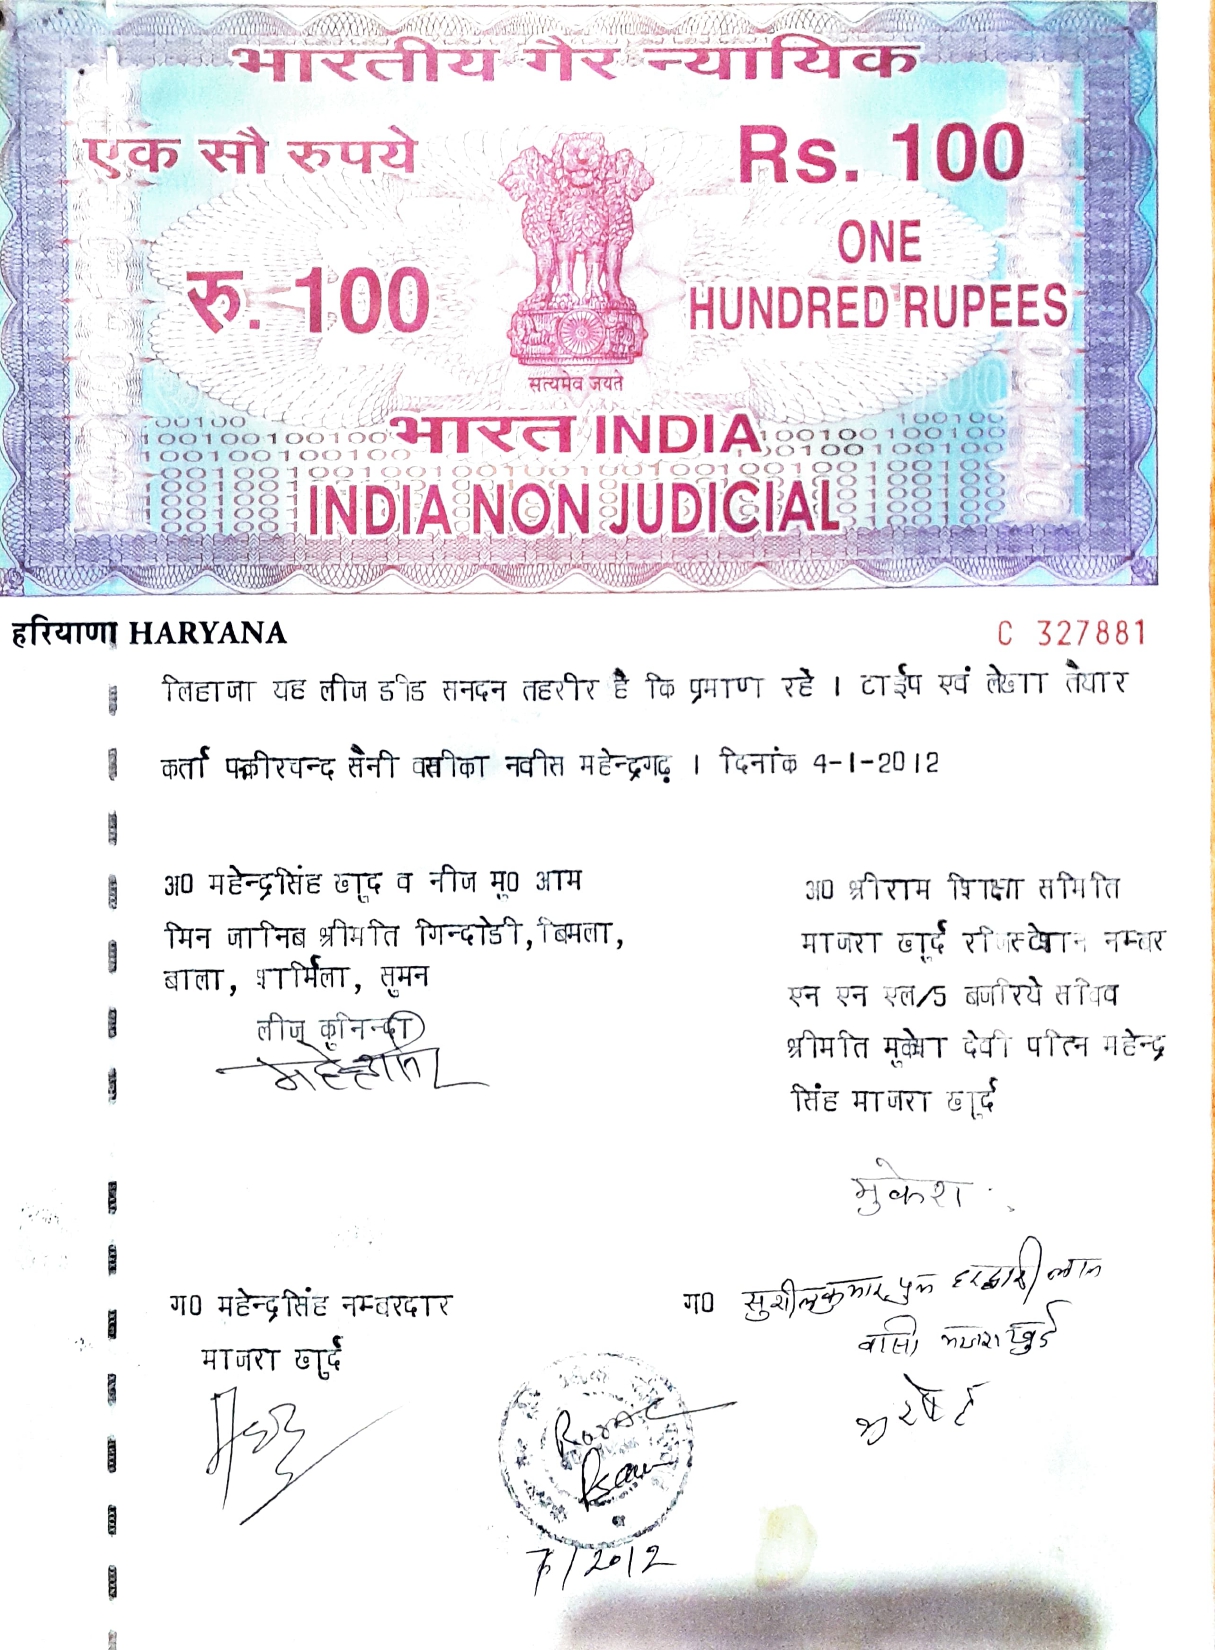 भारतीय गैर न्यायिक
एक सौ रुपये
Rs. 100
रु. 100
ONE
HUNDRED RUPEES
सत्यमेव जयते
भारत INDIA
INDIA NON JUDICIAL
हरियाणा HARYANA
C 327881
लिहाजा यह लीज डीड सनदन तहरीर है कि प्रमाण रहे । टाईप एवं लेखा तैयार
कर्ता फकीरचन्द सैनी वसीका नवीस महेन्द्रगढ़ । दिनांक 4-1-2012
अ0 महेन्द्रसिंह खुद व नीज मु0 आम
मिन जानिब श्रीमति गिन्दोडी, बिमला,
बाला, शर्मिला, सुमन
लीज कुनिन्दा
अ0 श्रीराम शिक्षा समिति
माजरा खुर्द रजिस्टेशन नम्बर
एन एन एल/5 बजरिये सचिव
श्रीमति मुकेश देवी पत्नि महेन्द्र
सिंह माजरा खुर्द
मुकेश
ग0 महेन्द्रसिंह नम्बरदार
माजरा खुर्द
ग0 सुशीलकुमार पुत्र हरद्वारी लाल
वासी माजरा खुर्द
/2012